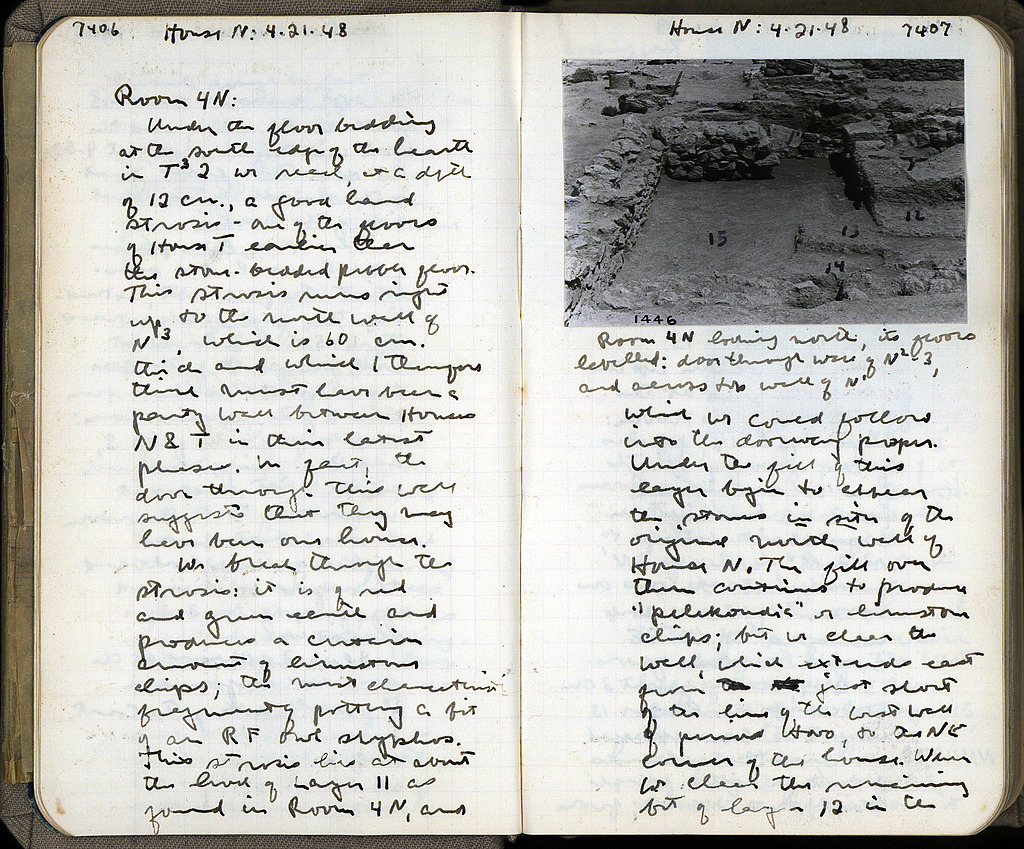 7406 House N: 4.21.48
Room 4N:
Under the floor bedding
at the south edge of the hearth
in T³2 we reach, at a depth
of 12 cm., a good hard
strosis - one of the floors
of House T earlier than
the stone-bedded pebble floor.
This strosis runs right
up to the north wall of
N³, which is 60 cm.
thick and which I therefore
think must have been a
party wall between Houses
N & T in their latest
phase. In fact, the
door through this wall
suggests that they may
have been one house.
We break through the
strosis: it is
and green earth and
produces a certain
amount of limestone
chips; the most characteristic
fragment of pottery a bit
of an RF owl skyphos.
This strosis lies at about
the level of Layer 11 as
found in Room 4N, and
House N: 4.21.48 7407
15
12
13
14
1446
Room 4N looking north, its floors
levelled: door through wall of N² 3,
and across the wall of N¹
which we could follow
into the doorway proper.
Under the fill of this
layer begin to appear
the stones in situ of the
original north wall of
House N. The fill over
them continues to produce
"pelekoudia" or limestone
chips; but we clear the
wall which extends east
from just short
of the line of the west wall
of period to the NE
corner of the house. When
we clear the remaining
bit of layer 12 in the